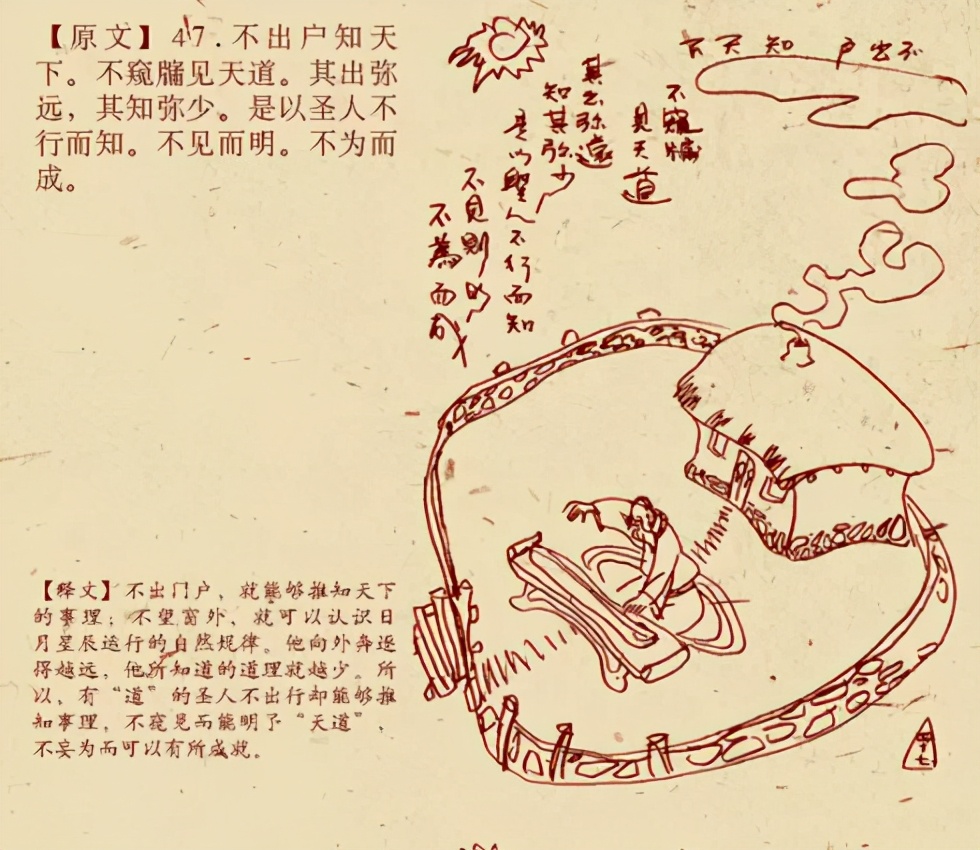 【原文】47.不出户知天
下。不窥牖见天道。其出弥
远，其知弥少。是以圣人不
行而知。不见而明。不为而
成。
不出户知天下
不窺牖
見天道
其出弥遠
知其弥少
是以聖人不行而知
不見則明
不為而成
【释文】不出门户，就能够推知天下
的事理；不望窗外，就可以认识日
月星辰运行的自然规律。他向外奔逐
得越远，他所知道的道理就越少。所
以，有“道”的圣人不出行却能够推
知事理，不窥见而能明了“天道”，
不妄为而可以有所成就。
四十七